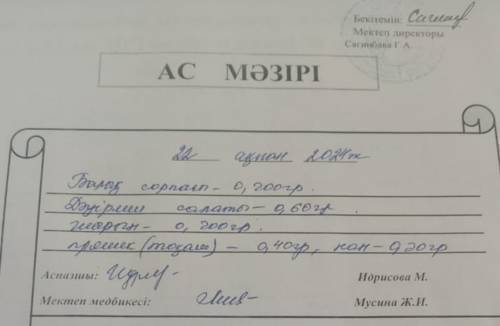 Бекітемін:
Мектеп директоры
Сагинбаева Г.А.
АС МӘЗІРІ
22 ақпан 2024ж
Балық сорпасы - 0,200гр.
Дәрумен салаты - 0,60гр
шырын - 0,200гр.
пряник (тоқаш) - 0,40гр, нан - 0,20гр
Аспазшы: Идрисова М.
Мектеп медбикесі: Мусина Ж.И.